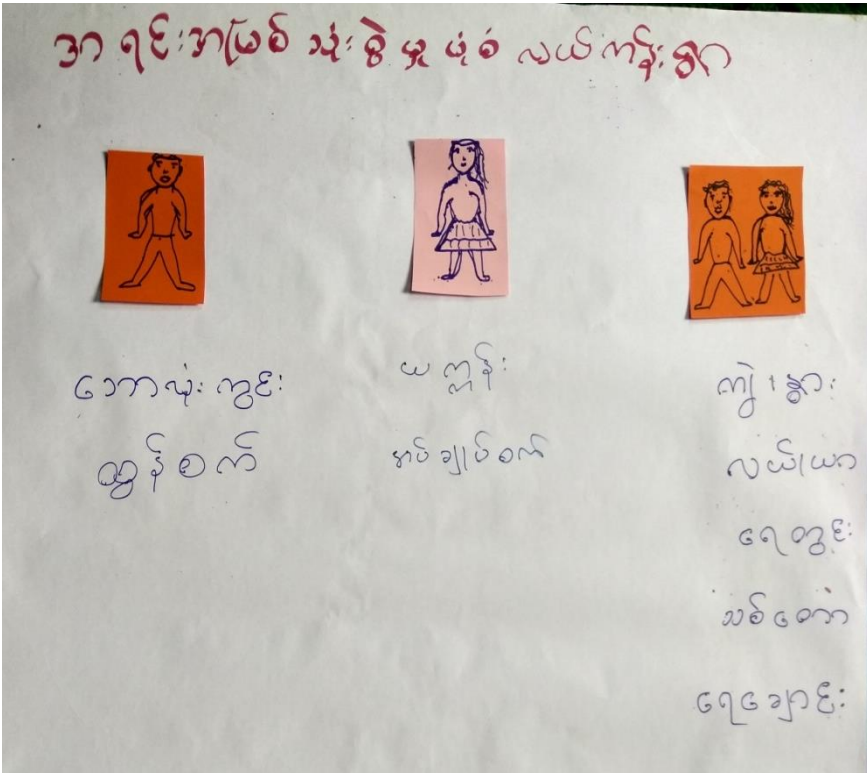 အရင်းအမြစ် သုံးစွဲမှု ပုံစံ လယ်ကန်းရွာ
ဘောလုံးကွင်း
ထွန်စက်
ယက္ကန်း
အပ်ချုပ်စက်
ကျွဲ၊နွား
လယ်၊ယာ
ရေတွင်း
သစ်တော
ရေချောင်း